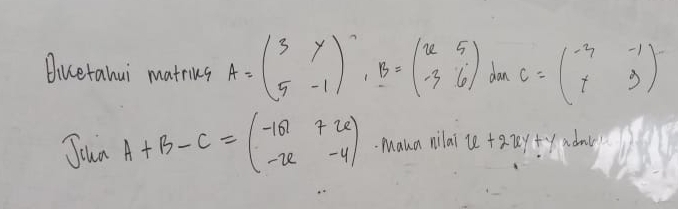 Diketahui matriks A = (3 y; 5 -1), B = (x 5; -3 6) dan C = (-3 -1; y 9)
Jika A + B - C = ( 7x; -x -4). Maka nilai x + 2xy + y adalah